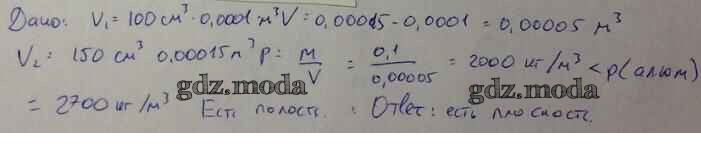 Дано: V₁ = 100 см³ · 0,0001 м³ V = 0,00015 - 0,0001 = 0,00005 м³
V₂ = 150 см³ 0,00015 м³ p = M/V = 0,1/0,00005 = 2000 кг/м³ < p(алюм)
= 2700 кг/м³ Есть полость. Ответ: есть плоскость.
gdz.moda gdz.moda